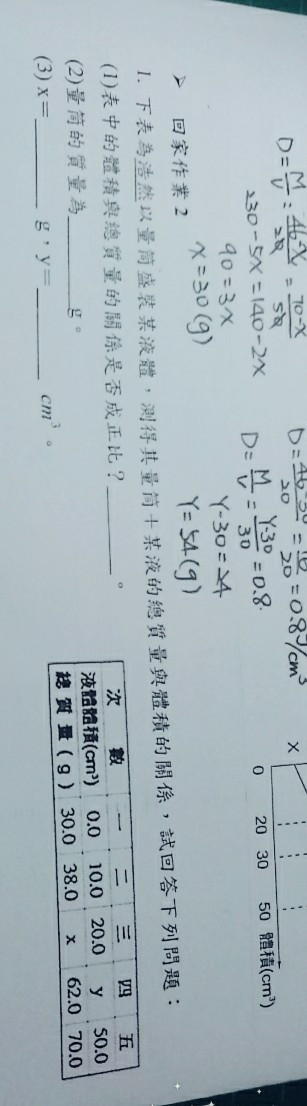 D=M/V : 46-X/20 = 70-X/50
230-5X=140-2X
90=3X
X=30(g)
D=46-30/20=16/20=0.8g/cm³
D=M/V=Y-30/30=0.8
Y-30=24
Y=54(g)
X
0 20 30 50 體積(cm³)
➢ 回家作業 2
1. 下表為浩然以量筒盛裝某液體，測得其量筒＋某液的總質量與體積的關係，試回答下列問題：
(1)表中的體積與總質量的關係是否成正比？________。
(2)量筒的質量為________g。
(3)x=________ g，y=________ cm³。
次 數 一 二 三 四 五
液體體積(cm³) 0.0 10.0 20.0 y 50.0
總 質 量 ( g ) 30.0 38.0 x 62.0 70.0